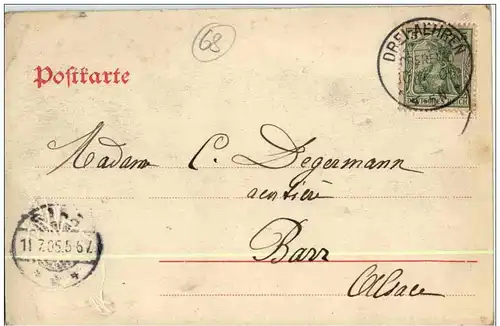 68
DREI-AEHREN
Postkarte
DEUTSCHES REICH
Madame C. Degermann
11.7.05.5-6 N.
Barr
Alsace